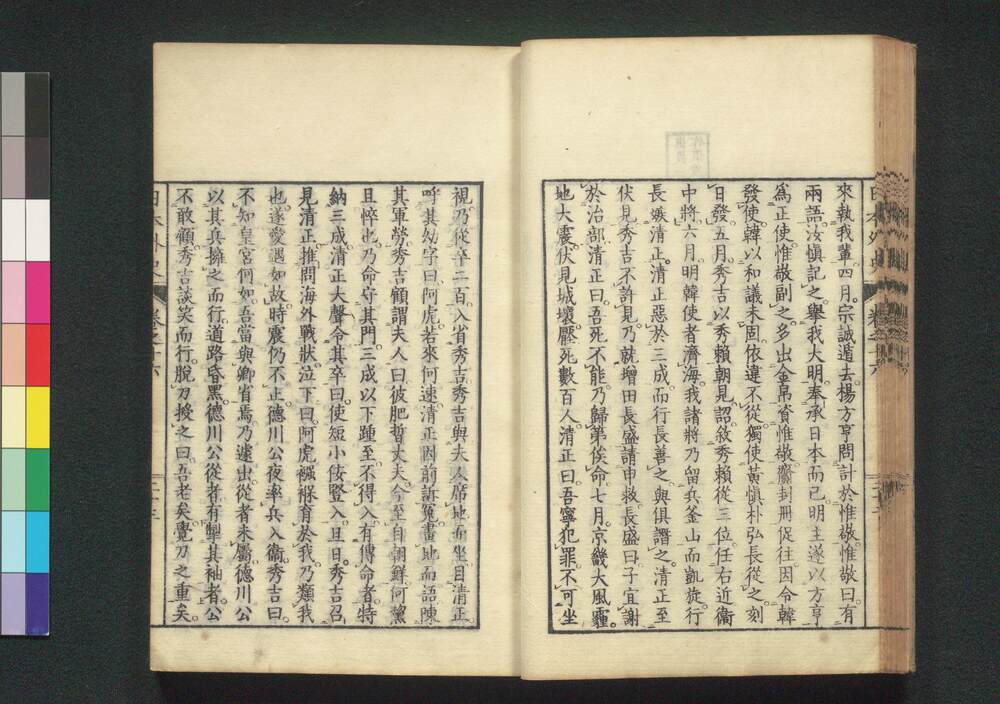 來執我輩四月宗誠遁去楊方亨問計於惟敬惟敬曰有
兩語汝愼記之舉我大明奉承日本而已明主遂以方亨
爲正使惟敬副之多出金帛資惟敬齎封冊促往因令韓
發使韓以和議未固依違不從獨使黃愼朴弘長從之刻
日發五月秀吉以秀賴朝見詔敘秀賴從三位任右近衞
中將六月明韓使者濟海我諸將乃留兵釜山而凱旋行
長嫉淸正淸正惡於三成而行長善之與俱譖之淸正至
伏見秀吉不許見乃就增田長盛請申救長盛曰子宜謝
於治部淸正曰吾死不能乃歸第俟命七月京畿大風霾
地大震伏見城壞壓死數百人淸正曰吾寧犯罪不可坐
視乃從卒二百入省秀吉秀吉與夫人席地而坐目淸正
呼其幼字曰阿虎若來何速淸正因前訴冤畫地而語陳
其軍勞秀吉顧謂夫人曰彼肥晳丈夫今至自朝鮮何黧
且悴也乃命守其門三成以下踵至不得入有傳命者特
納三成淸正大聲令其卒曰使短小佞豎入且日秀吉召
見淸正推問海外戰狀泣下曰阿虎襁褓育於我乃類我
也遂愛遇如故時震仍不止德川公夜率兵入衞秀吉曰
不知皇宮何如吾當與卿省焉乃遽出從者未屬德川公
以其兵擁之而行道路昏黑德川公從者有掣其袖者公
不敢顧秀吉談笑而行脫刀授之曰吾老矣覺刀之重矣